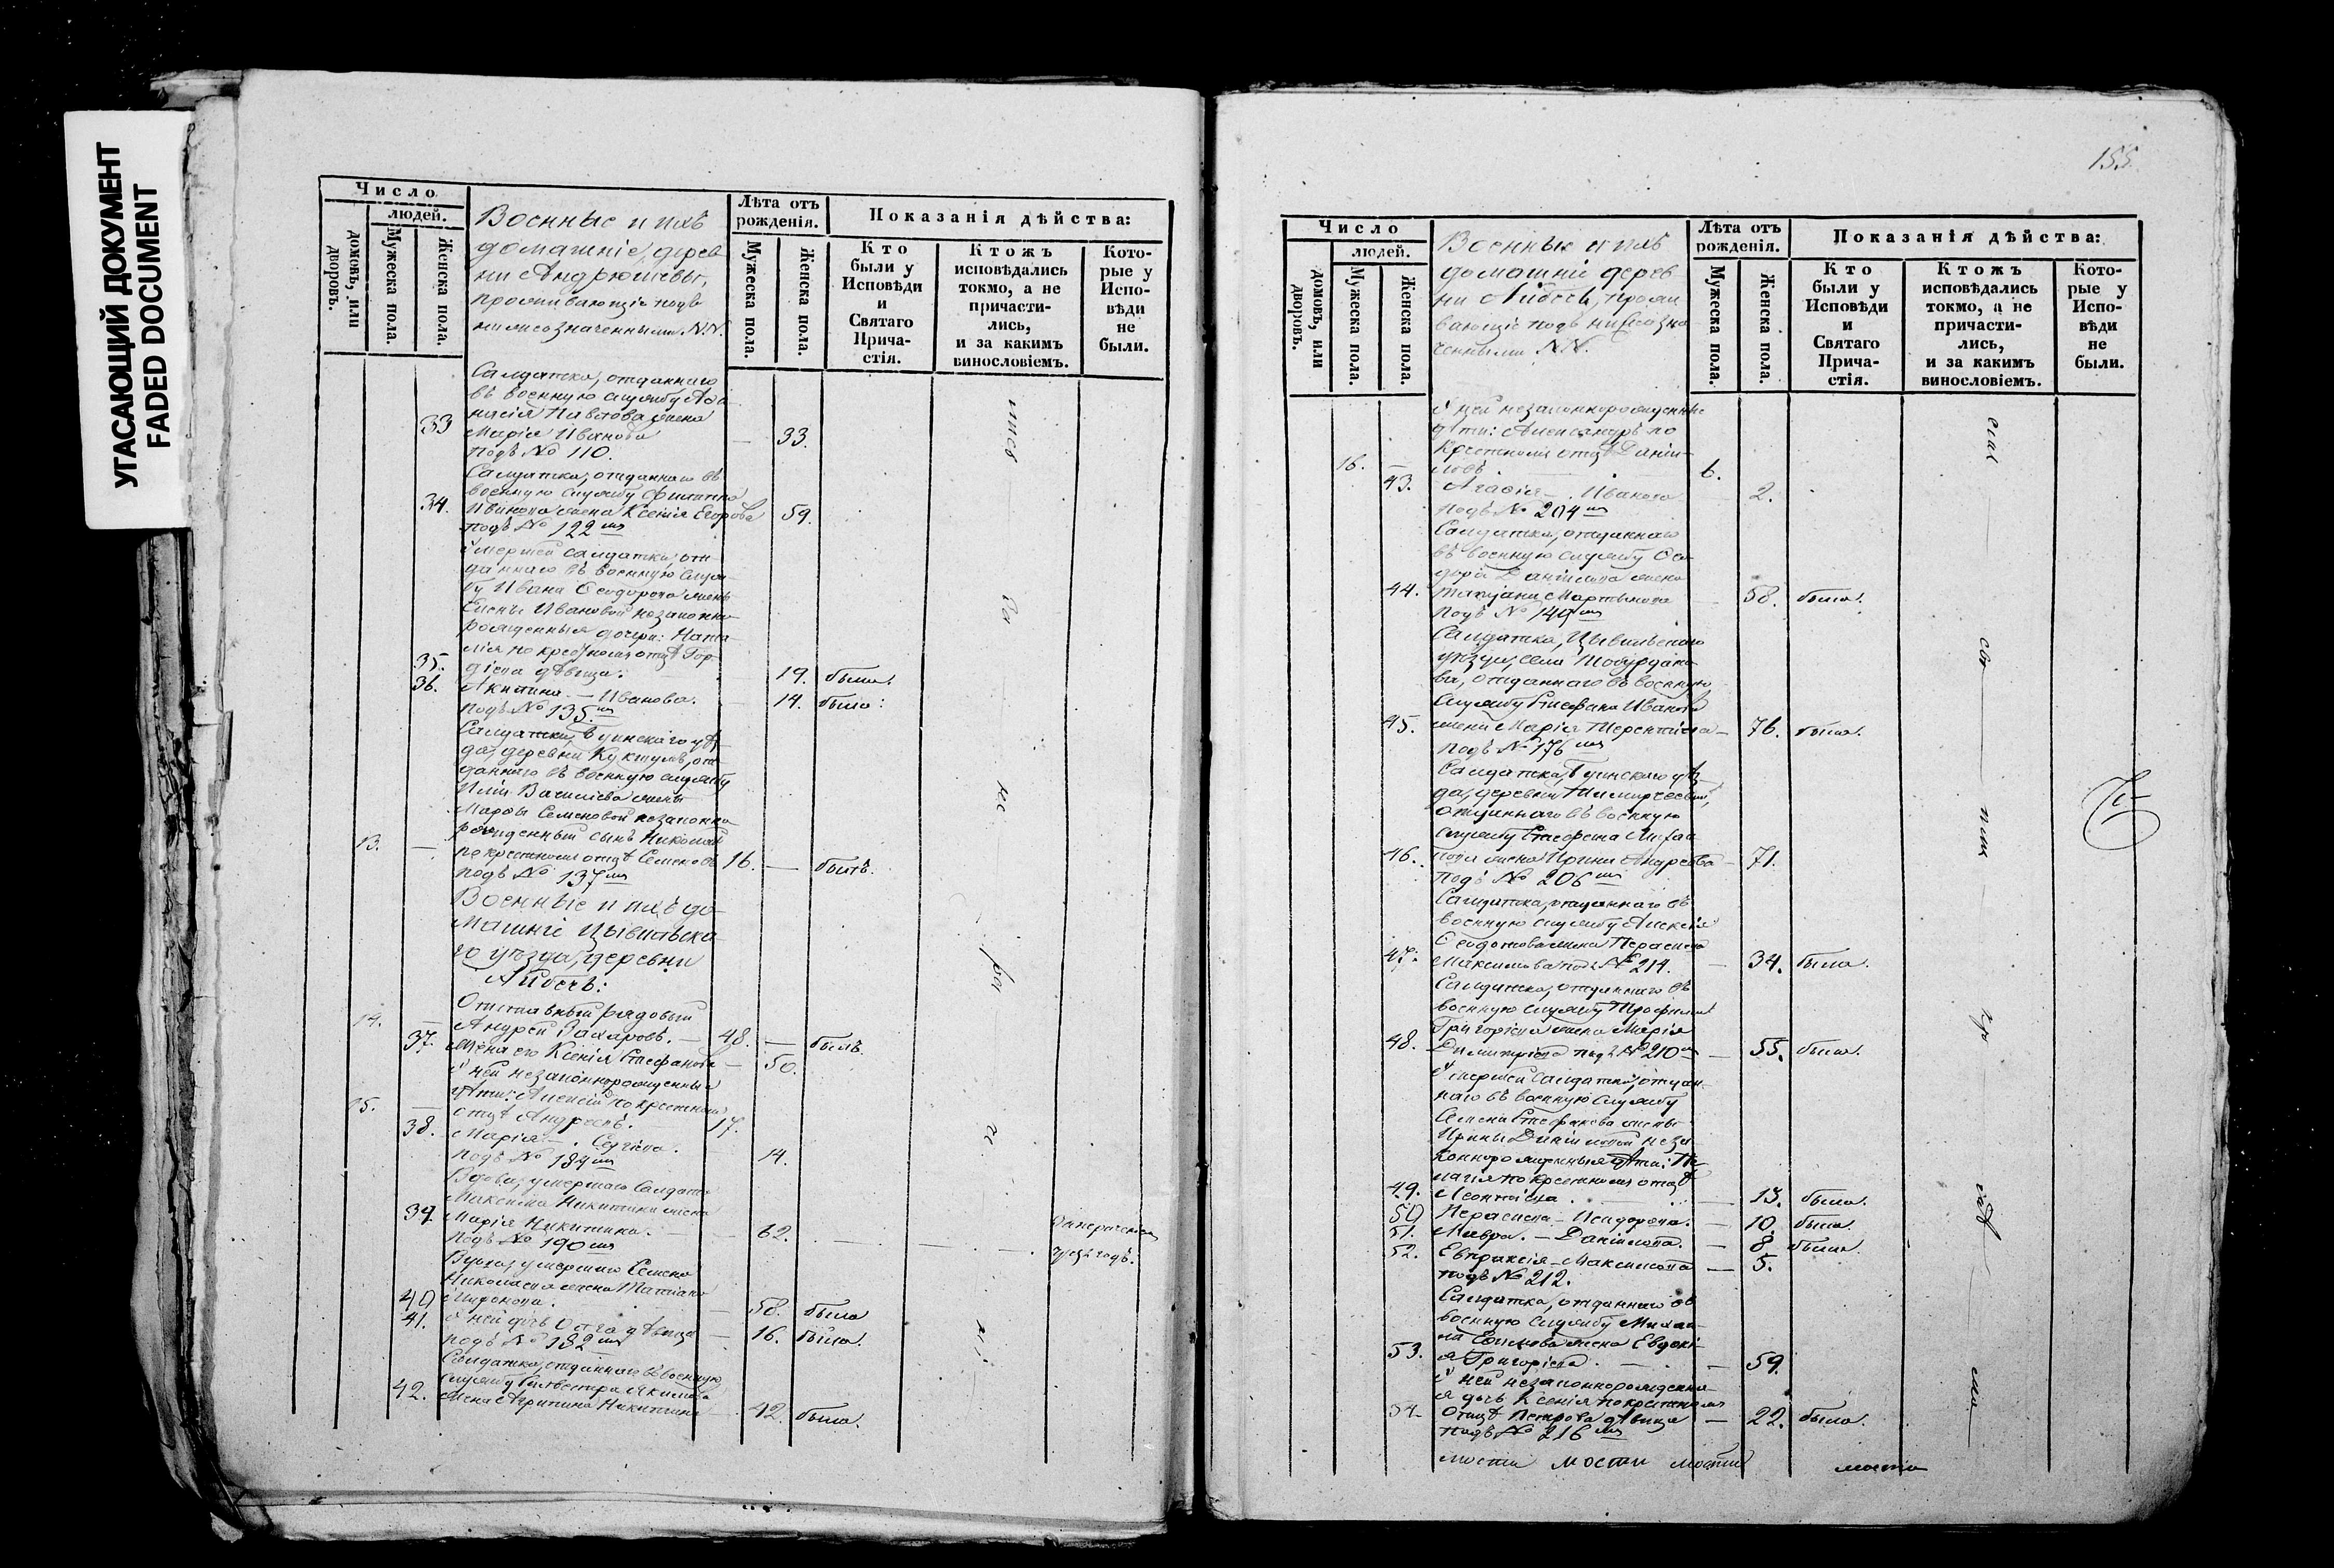 УГАСАЮЩИЙ ДОКУМЕНТ
FADED DOCUMENT
Число
людей.
домовъ, или дворовъ.
Мужеска пола.
Женска пола.
Военные и ихъ
домашніе, дерев
ни Андрюшевы,
проживающіе подъ
нижеозначенными N.N.
Лѣта отъ рожденія.
Мужеска пола.
Женска пола.
Показанія дѣйства:
Кто были у Исповѣди и Святаго Причастія.
Ктожъ исповѣдались токмо, а не причастились, и за какимъ винословіемъ.
Которые у Исповѣди не были.
Салдатка, отданнаго
въ военную службу
Павлова жена
33 Марія Иванова — 33.
подъ № 110.
Салдатка, отданнаго въ
военную службу Филиппа
34. жена Ксенія Егорова 59.
подъ № 122мъ
Умершей салдатки, от
даннаго въ военную служ
бу Ивана Ѳеодорова жены
Елены Ивановой незаконно
рожденныя дочери: Ната
лія по крестномъ отцѣ Гор
35. дѣева дѣвица. 19. была.
36. Акилина — Иванова. 14. была.
подъ № 135мъ
Салдатки, Буинскаго уѣз
да, деревни Кукшумъ, от
даннаго въ военную службу
Ильи Василіева жены
Марѳы Семеновой незаконно
рожденный сынъ Николай
13. — по крестномъ отцѣ Семеновъ 16. — былъ.
подъ № 137мъ
Военные и ихъ до
машніе Цывильска
го уѣзда, деревни
Отставный рядовый
14. — Андрей Захаровъ. — 48. — былъ.
37. Жена его Ксенія Стефанова — 50.
У ней незаконнорожденныя
дѣти: Алексій по крестномъ
15. — отцѣ Андреевъ. 17.
38. Марія — . Сергіева. 14.
подъ № 184мъ
Вдова, умершаго Салдата
Максима Никитина жена
39. Марія Никитина. — 62. —
подъ № 190мъ
Вдова, умершаго Семена
Николаева жена Татіана
40 — 58. была
41. У ней дочь Ольга дѣвица — 16. была.
подъ № 182мъ
Салдатка, отданнаго въ военную
службу Сильвестра Якимова
42. жена Агрипина Никитина — 42. была.
155.
Число
людей.
домовъ, или дворовъ.
Мужеска пола.
Женска пола.
Военные и ихъ
домашніе дерев
ни прожи
вающіе подъ нижеозна
ченными N.N.
Лѣта отъ рожденія.
Мужеска пола.
Женска пола.
Показанія дѣйства:
Кто были у Исповѣди и Святаго Причастія.
Ктожъ исповѣдались токмо, а не причастились, и за какимъ винословіемъ.
Которые у Исповѣди не были.
У ней незаконнорожденные
дѣти: Александръ по
крестномъ отцѣ Даніи
16. — ловъ. 6.
43. Агаѳія — . Иванова 2.
подъ № 204мъ
Салдатка, отданнаго
въ военную службу Ѳео
дора Даніилова жена
44. Татіана Мартынова — 58. была.
подъ № 149мъ
Салдатка, Цывильскаго
уѣзда, села Тобурдано
ва, отданнаго въ военную
службу Стефана Иванова
45. жена Марія Терентіева — 76. была.
подъ № 176мъ
Салдатка, Буинскаго уѣз
да, деревни
отданнаго въ военную
службу Стефана Михаи
46. лова жена Ирина Андреева — 71.
подъ № 206мъ
Салдатка, отданнаго въ
военную службу Алексія
Ѳеодотова жена Параскева
47. Максимова подъ № 214. — 34. была.
Салдатка, отданнаго въ
военную службу Трофима
Григоріева жена Марія
48. Димитріева подъ № 210мъ — 55. была.
Умершей салдатки, отдан
наго въ военную службу
Семена Стефанова жены
Ирины Даніиловой неза
коннорожденныя дѣти: Пе
лагія по крестномъ отцѣ
49. Леонтіева. — 13. была.
50 Параскева — Исидорова. — 10. была.
51. Мавра. — Даніилова. — 8. была.
52. Евпраксія — Максимова — 5.
подъ № 212.
Салдатка, отданнаго въ
военную службу Михаи
ла Ефимова жена Евдокі
53. я Григоріева. — 59.
У ней незаконнорожденна
я дочь Ксенія по крестномъ
54. отцѣ Петрова дѣвица — 22. была.
подъ № 216мъ